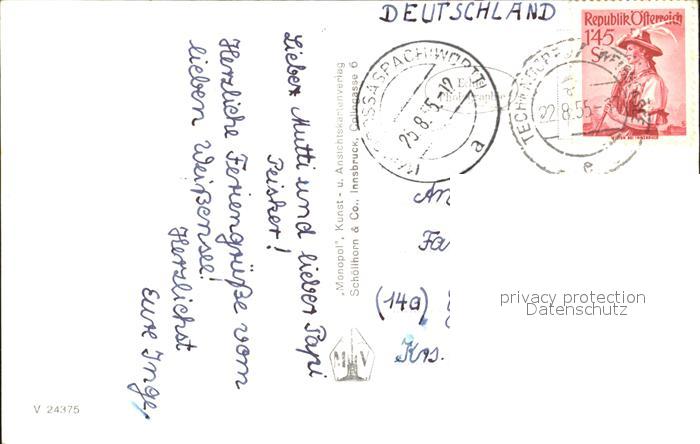 DEUTSCHLAND
Republik Österreich
1'45
S
TECHENDORF
22.8.55
e
25.8.55.-12
e
Echte
Photographie
Lieber Mutti und lieber Papi
Peisker!
Herzliche Feriengrüße vom
lieben Weißensee!
Herzlichst
Eure Inge,
"Monopol", Kunst- u. Ansichtskartenverlag
Schöllhorn & Co., Innsbruck, Colingasse 6
M V
An
Fa
(14a)
Krs.
privacy protection
Datenschutz
V 24375